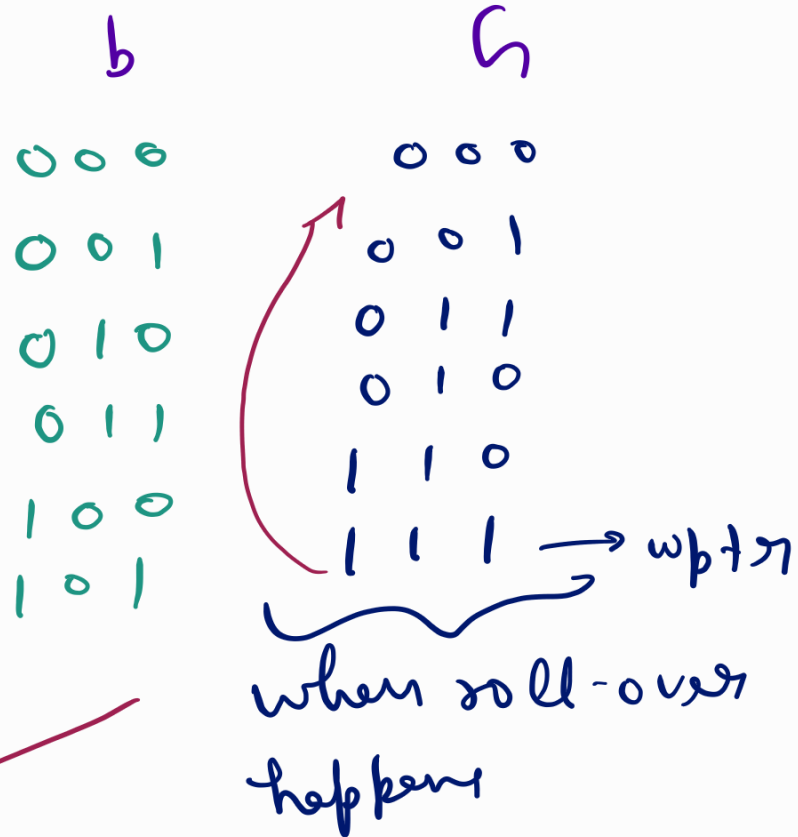 b G
0 0 0 0 0 0
0 0 1 0 0 1
0 1 0 0 1 1
0 1 1 0 1 0
1 0 0 1 1 0
1 0 1 1 1 1 → wptr
when roll-over
happens